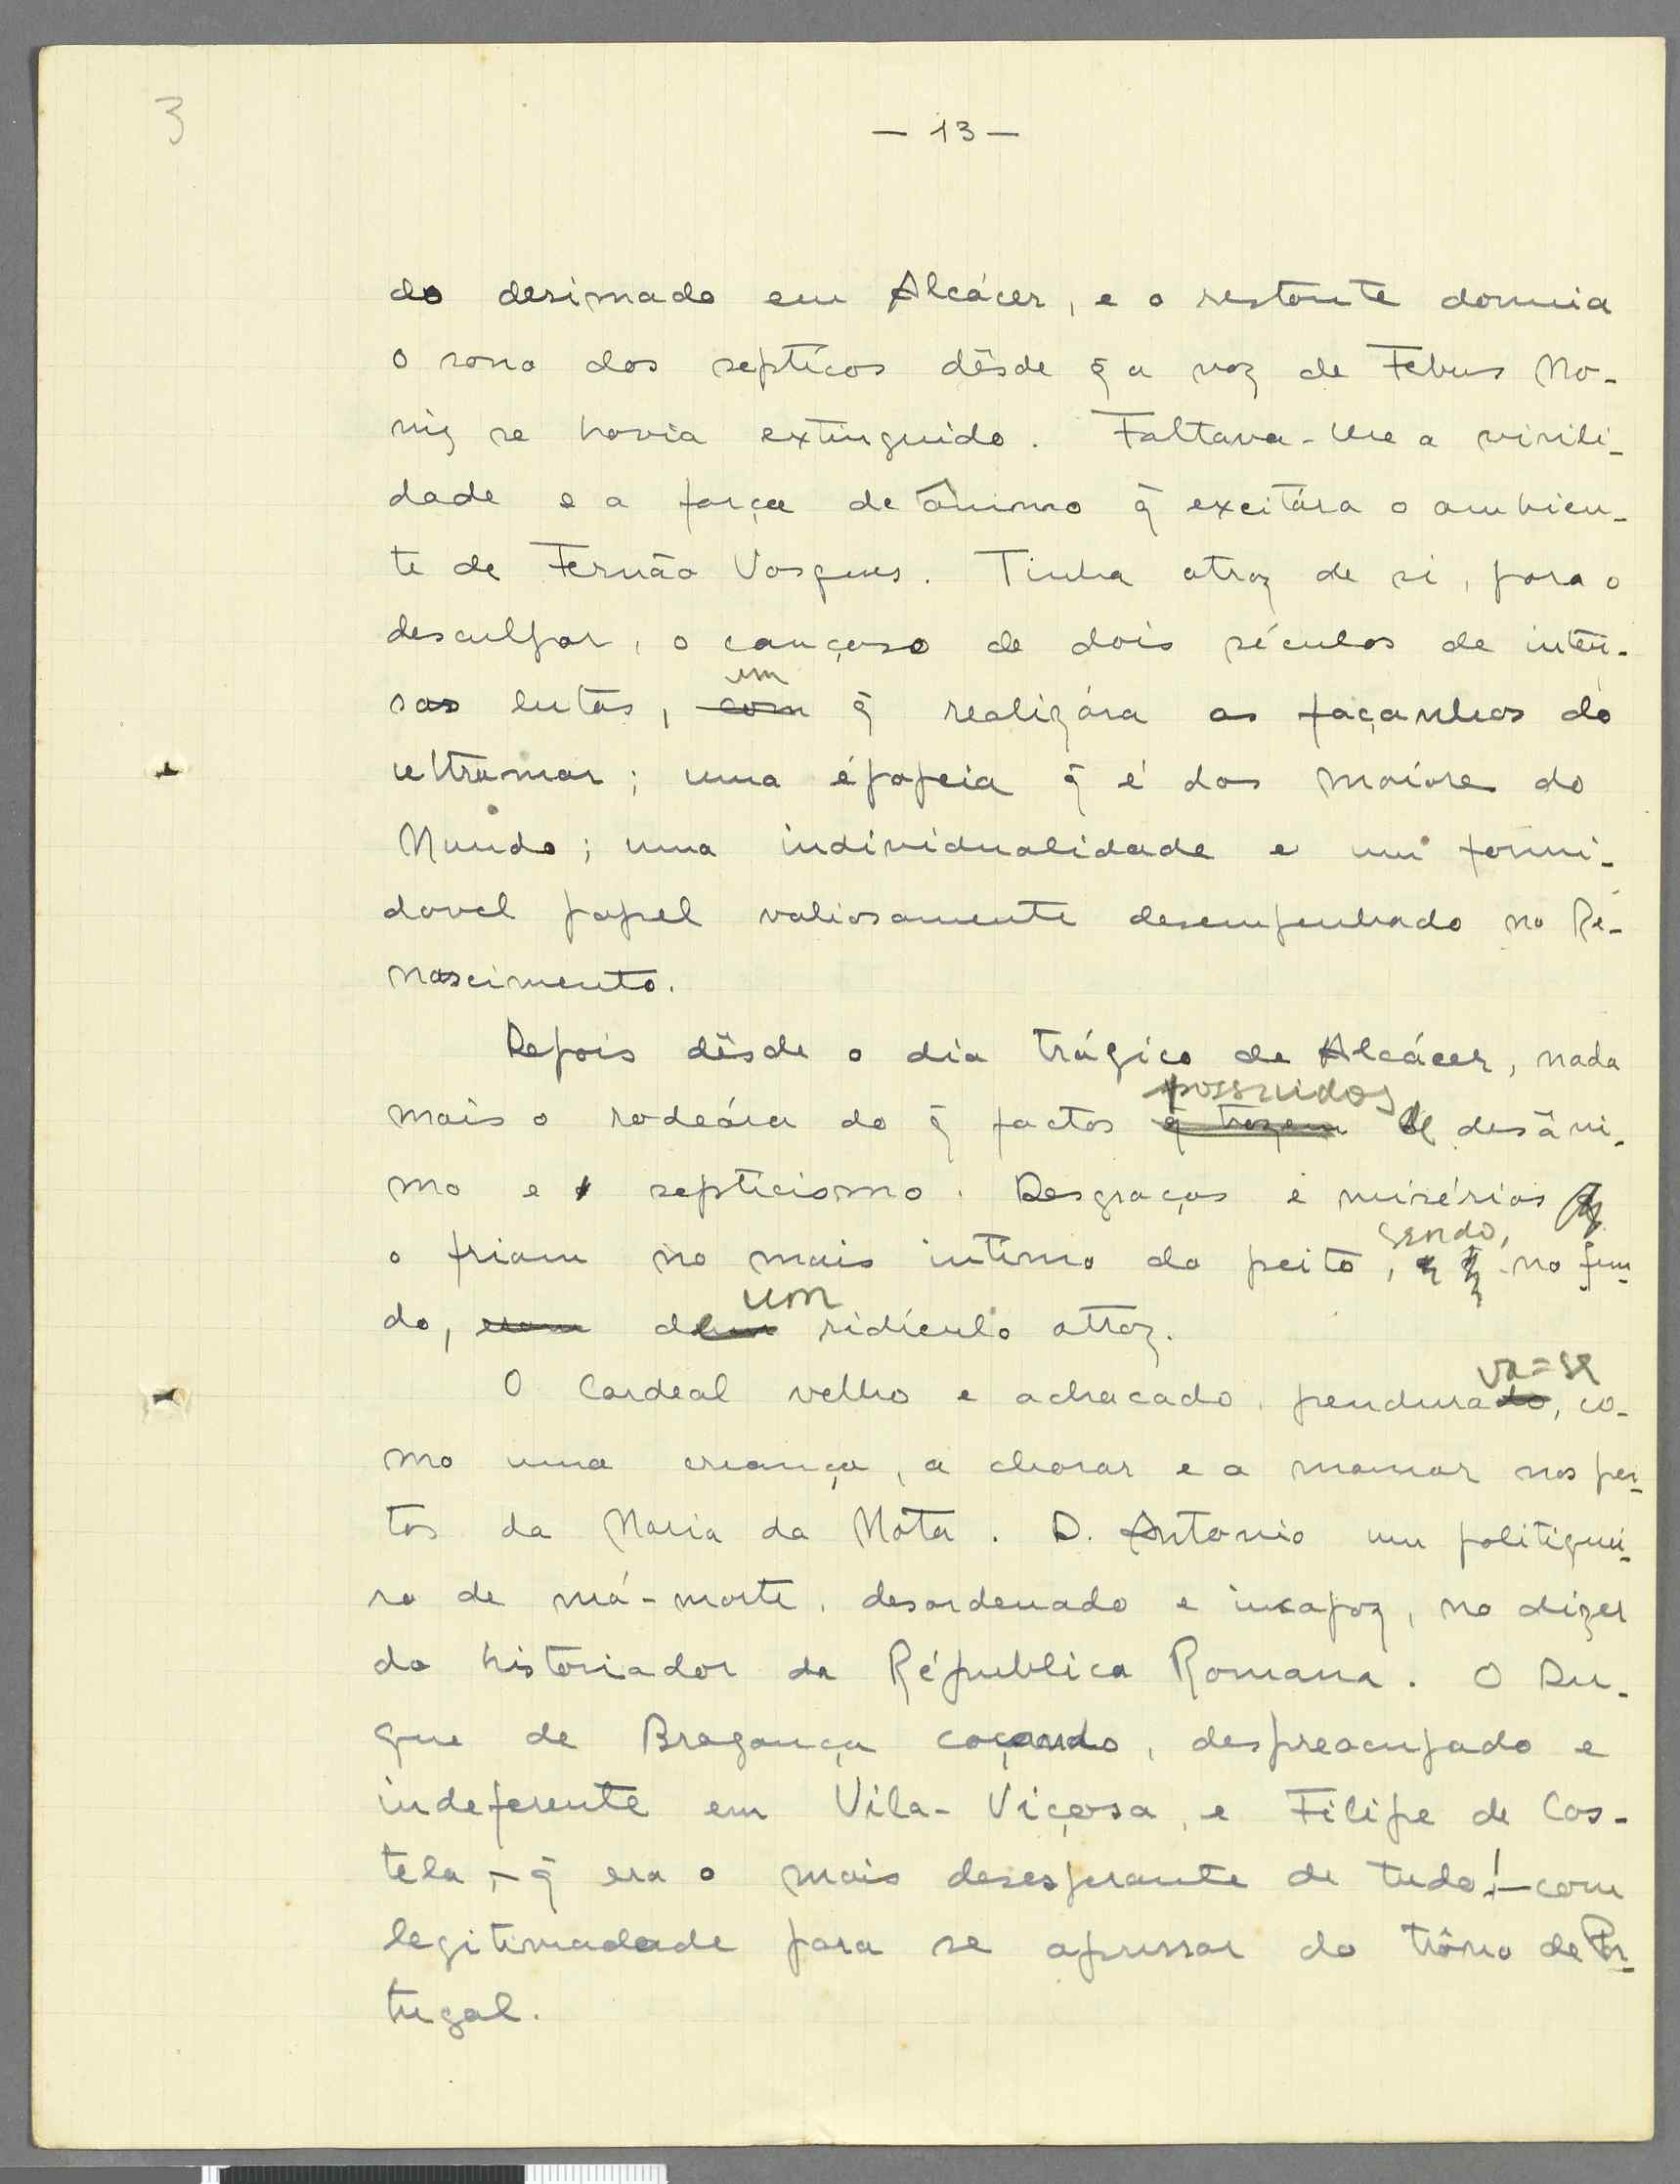 3
— 13 —
do desimado em Alcácer, e o restante dormia
o sono dos septícos dêsde q̃ a voz de Febus Mo-
niz se havia extinguido. Faltava-lhe a virili-
dade e a força de ânimo q̃ excitára o ambien-
te de Fernão Vasques. Tinha atraz de si, para o
desculpar, o cançaso de dois séculos de inten-
em
sas lutas, com q̃ realizára as façanhas do
ultramar; uma épopeia q̃ é das maiores do
Mundo; uma individualidade e um formi-
davel papel valiosamente desempenhado no Re-
nascimento.
Depois dêsde o dia trágico de Alcácer, nada
possuidos
mais o rodeára do q̃ factos q̃ trazem de desâni-
mo e septicismo. Desgraças e misérias q̃
sendo,
o friam no mais intímo do peito, no fun-
um
do, eram dum ridículo atroz.
va=se
O Cardeal velho e achacado, pendurado, co-
mo uma criança, a chorar e a mamar nos pei-
tos da Maria da Mota. D. Antonio um politiquei-
ro de má-morte, desordenado e incapaz, no dizer
do historiador da Répública Romana. O Du-
que de Bragança coçando, despreocupado e
indeferente em Vila-Viçosa, e Filipe de Cas-
tela, — q̃ era o mais desesperante de tudo! — com
legitimadade para se apussar do trôno de Por-
tugal.